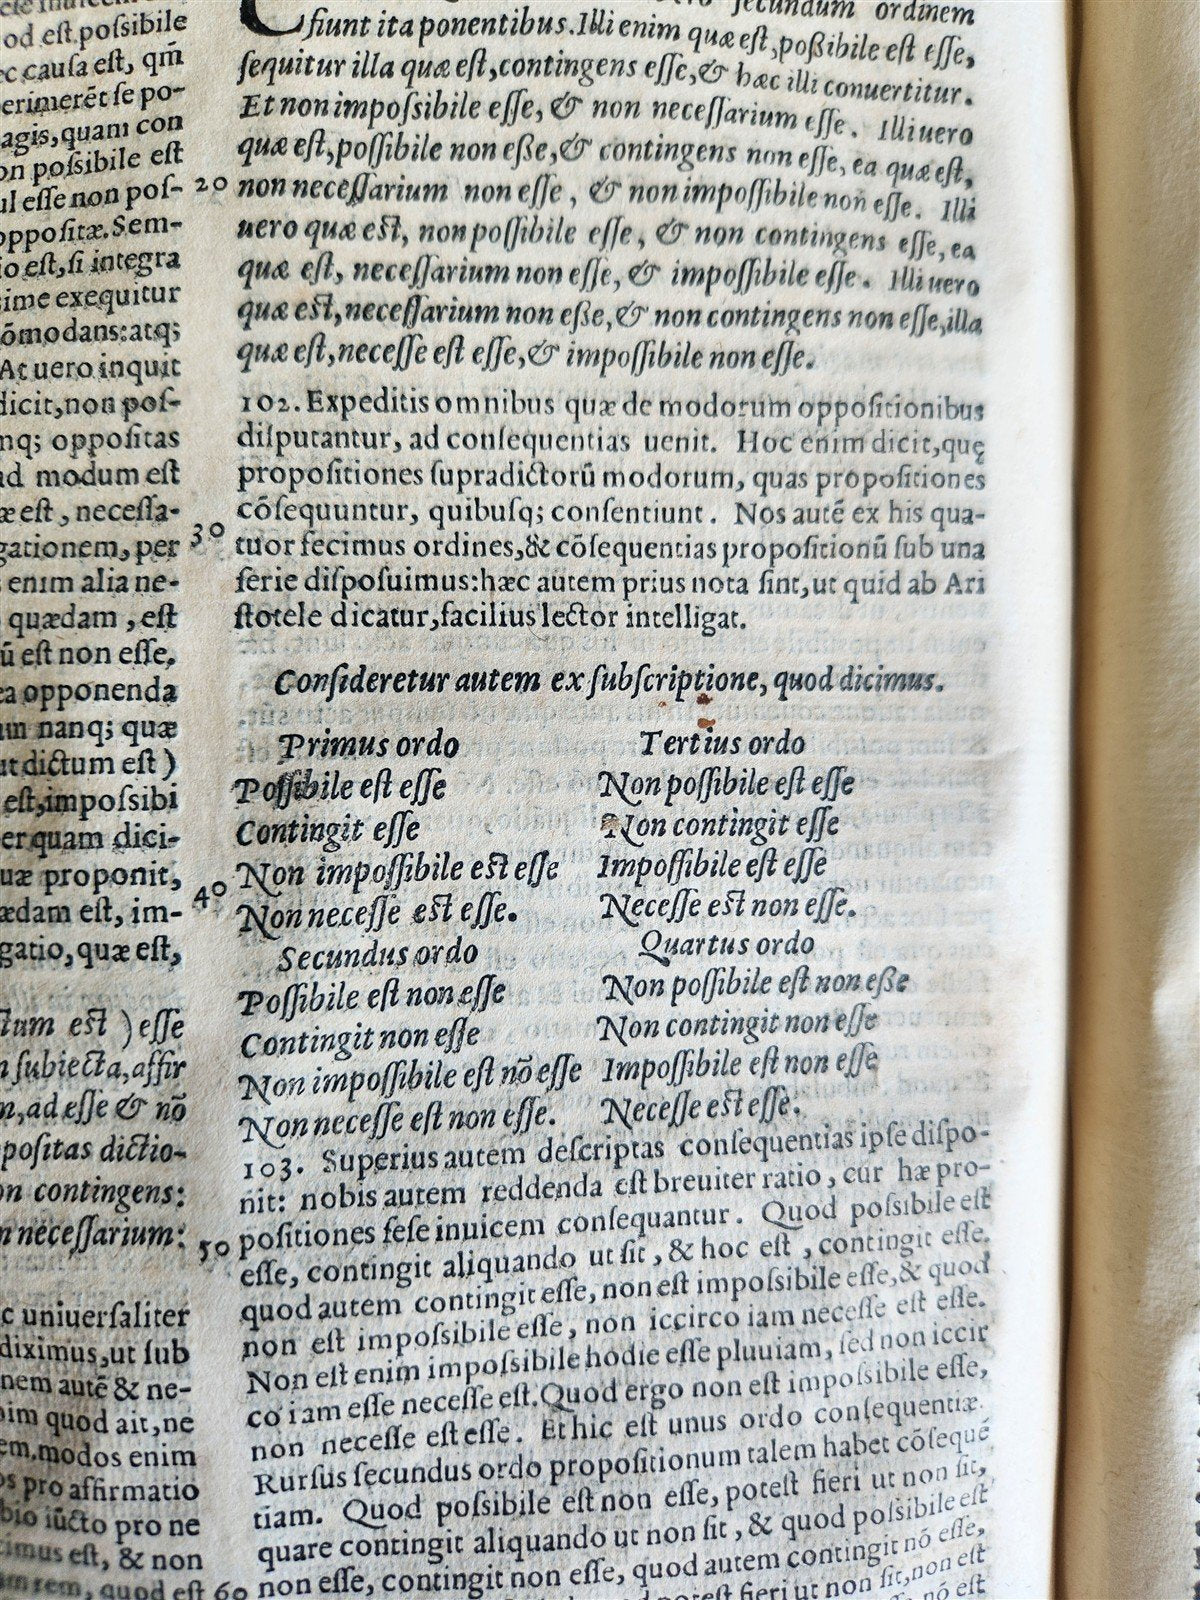 od est possibile
c causa est, qm̃
erimerēt se po-
agis, quam con
on possibile est
ul esse non pos-
opposi tæ. Sem-
io est, si integra
ime exequitur
ōmodans: atq;
At uero inquit
dicit, non pos-
nq; oppositas
ad modum est
æ est, necessa-
gationem, per
enim alia ne-
quædam, est
ū est non esse,
ea opponenda
um nanq; quæ
ut dictum est)
est, impossibi
er quam dici-
uæ proponit,
ædam est, im-
gatio, quæ est,
tum est) esse
n subiecta, affir
m, ad esse & nō
positas dictio-
on contingens:
n necessarium:
c uniuersaliter
diximus, ut sub
nem autē & ne-
im quod ait, ne
em. modos enim
os pro affirmatio
bio iūcto pro ne
imus est, & non
rem, quod est
secundum ordinem
fiunt ita ponentibus. Illi enim quæ est, poßibile est esse,
sequitur illa quæ est, contingens esse, & hæc illi conuertitur.
Et non impossibile esse, & non necessarium esse. Illi uero
quæ est, possibile non eße, & contingens non esse, ea quæ est,
20 non necessarium non esse, & non impossibile non esse. Illi
uero quæ est, non possibile esse, & non contingens esse, ea
quæ est, necessarium non esse, & impossibile esse. Illi uero
quæ est, necessarium non eße, & non contingens non esse, illa
quæ est, necesse est esse, & impossibile non esse.
102. Expeditis omnibus quæ de modorum oppositionibus
disputantur, ad consequentias uenit. Hoc enim dicit, quę
propositiones supradictorū modorum, quas propositiones
cōsequuntur, quibusq; consentiunt. Nos autē ex his qua-
30 tuor fecimus ordines, & cōsequentias propositionū sub una
serie disposuimus: hæc autem prius nota sint, ut quid ab Ari
stotele dicatur, facilius lector intelligat.
Consideretur autem ex subscriptione, quod dicimus.
Primus ordo
Possibile est esse
Contingit esse
Non impossibile est esse
40 Non necesse est esse.
Secundus ordo
Possibile est non esse
Contingit non esse
Non impossibile est nō esse
Non necesse est non esse.
Tertius ordo
Non possibile est esse
Non contingit esse
Impossibile est esse
Necesse est non esse.
Quartus ordo
Non possibile est non eße
Non contingit non esse
Impossibile est non esse
Necesse est esse.
103. Superius autem descriptas consequentias ipse dispo-
nit: nobis autem reddenda est breuiter ratio, cur hæ pro-
50 positiones sese inuicem consequantur. Quod possibile est
esse, contingit aliquando ut sit, & hoc est, contingit esse.
quod autem contingit esse, non est impossibile esse, & quod
non est impossibile esse, non iccirco iam necesse est esse.
Non est enim impossibile hodie esse pluuiam, sed non iccir
co iam esse necesse est. Quod ergo non est impossibile esse,
non necesse est esse. Et hic est unus ordo consequentiæ.
Rursus secundus ordo propositionum talem habet cōsequē
tiam. Quod possibile est non esse, potest fieri ut non sit,
quare contingit aliquando ut non sit, & quod possibile est
60 non esse, contingit non esse, quod autem contingit nō esse,
potest fieri ut non sit, non est
nō est